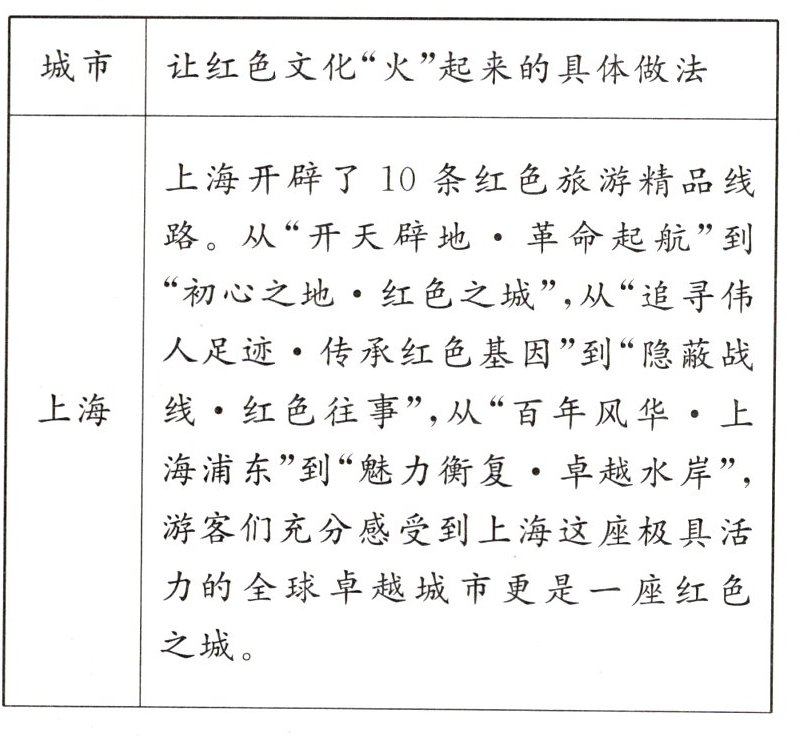 城市 让红色文化“火”起来的具体做法
上海开辟了 10 条红色旅游精品线
路。从“开天辟地·革命起航”到
“初心之地·红色之城”,从“追寻伟
人足迹·传承红色基因”到“隐蔽战
线·红色往事”,从“百年风华·上
上海
海浦东”到“魅力衡复·卓越水岸”,
游客们充分感受到上海这座极具活
力的全球卓越城市更是一座红色
之城。